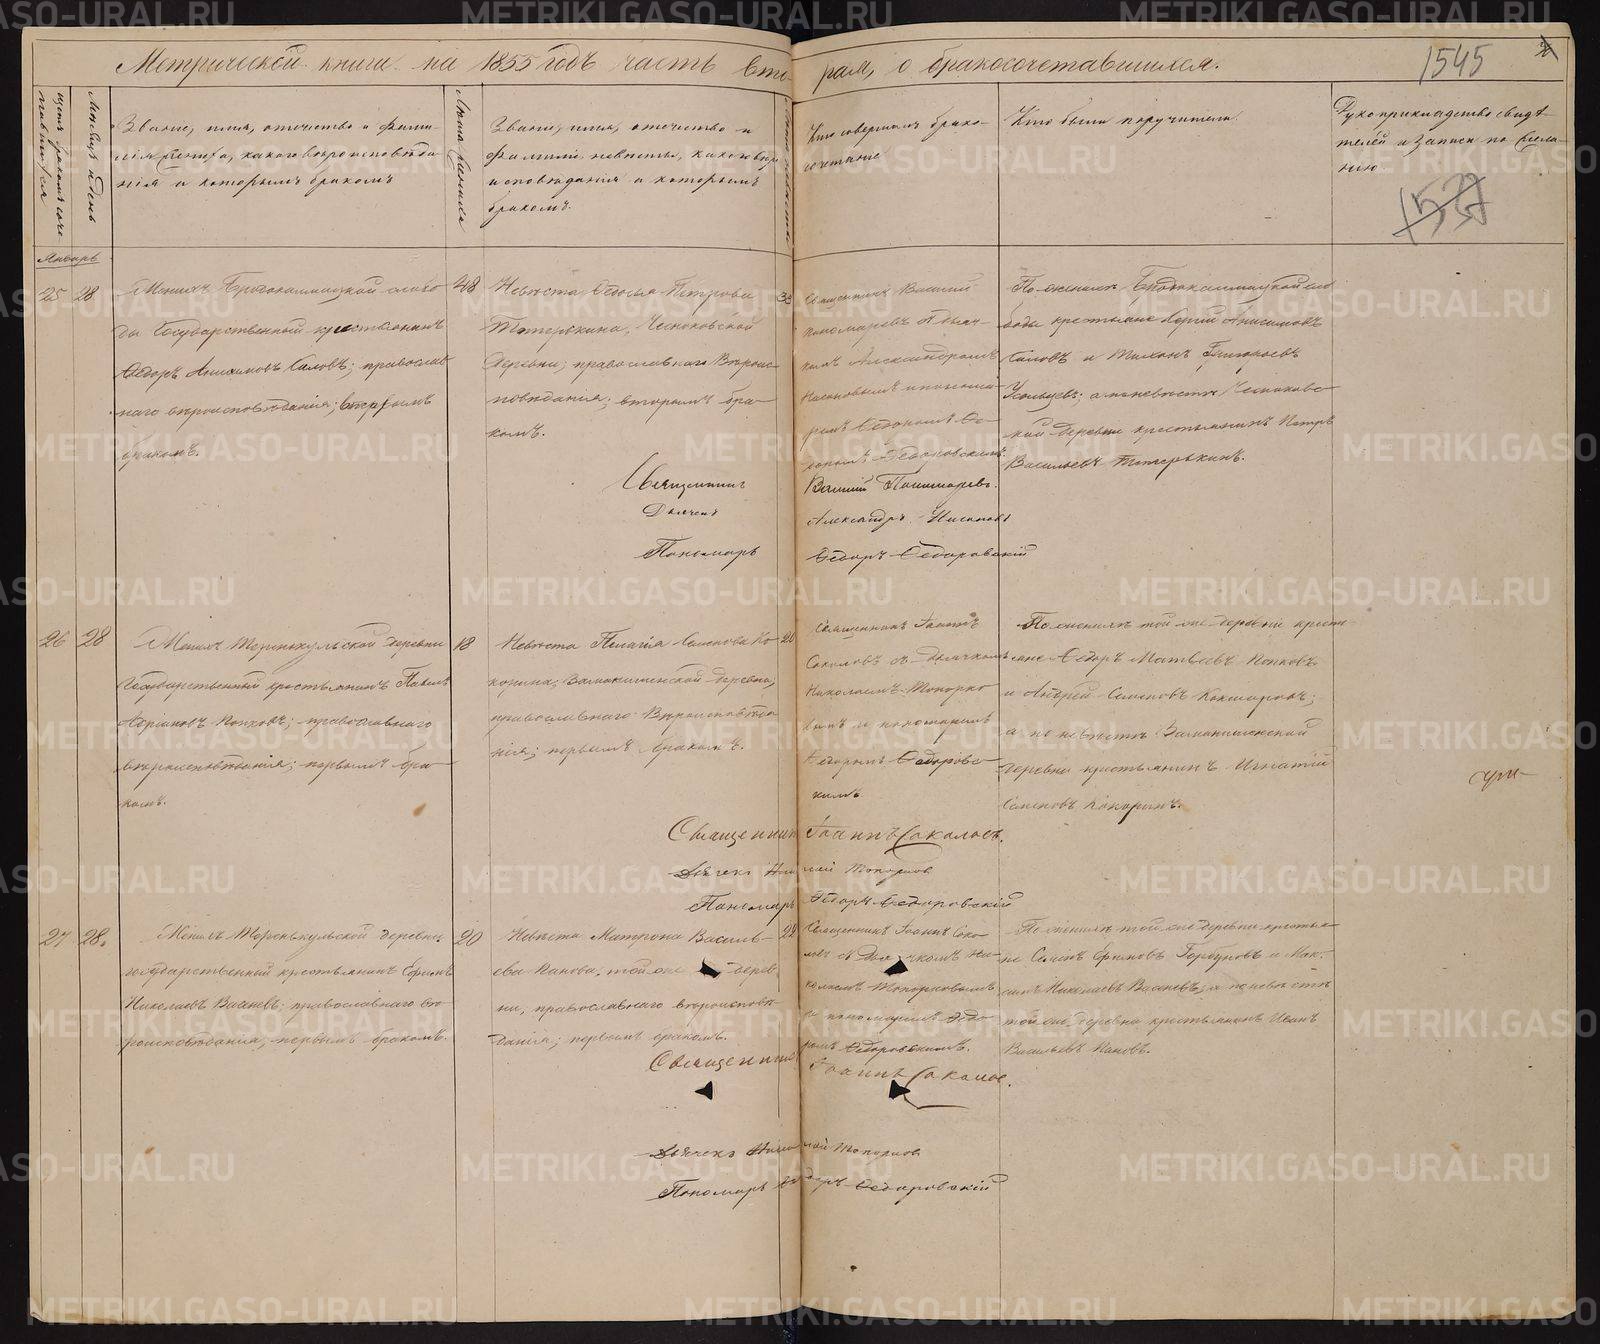 Метрической книги на 1855 годъ часть вторая, о бракосочетавшихся.
1545
Мѣсяцъ и день
Званіе, имя, отчество и фами-
лія жениха, какого вѣроисповѣда-
нія и которымъ бракомъ
Лѣта жениха
Званіе, имя, отчество и
фамилія невѣсты, какого вѣро
исповѣданія и которымъ
бракомъ.
Кто совершалъ брако-
сочетаніе
Кто были поручители.
Рукоприкладство свидѣ-
телей и записи по жела-
нію
Январь
25
28
Женихъ Бродокалмацкой слобо
ды Государственный крестьянинъ
Ѳедоръ Анисимовъ Саловъ; православ
наго вѣроисповѣданія; вторымъ
бракомъ.
48
Невѣста Ѳедосья Петрова
Тетерькина, Чесноковской
деревни; православнаго Вѣроис-
повѣданія; вторымъ бра-
комъ.
33
Священникъ Василій
Пономаревъ съ дьяч-
комъ Александромъ
и понома-
ремъ Ѳедоромъ Ѳе-
Ѳедоровскимъ.
По женихѣ Бродокалмацкой сло
боды крестьяне Анисимовъ
Саловъ и Тихонъ Григорьевъ
Усольцевъ; а по невѣстѣ Чесноковс-
кой деревни крестьянинъ Петръ
Васильевъ Тетерькинъ.
Священникъ Василій Пономаревъ.
Дьячекъ Александръ
Пономарь Ѳедоръ Ѳедоровскій
26
28
Женихъ Теренькульской деревни
Государственный крестьянинъ Павелъ
Адріановъ Попковъ; православнаго
вѣроисповѣданія; первымъ бра-
комъ.
18
Невѣста Пелагія Семенова Ко-
корина; деревни,
православнаго Вѣроисповѣда
нія; первымъ бракомъ.
20
Священникъ Іоаннъ
Соколовъ съ дьячкомъ
Николаемъ Топорко
вымъ и пономаремъ
Ѳедоромъ Ѳедоровс-
кимъ.
По женихѣ той же деревни кресть-
яне Ѳедоръ Матвеевъ Попковъ
и Андрей Семеновъ Кокшаровъ;
а по невѣстѣ
деревни крестьянинъ Игнатій
Семеновъ Кокоринъ.
Священникъ Іоаннъ Соколовъ.
Дьячекъ Николай Топорковъ
Пономарь Ѳедоръ Ѳедоровскій
27
28.
Женихъ Теренькульской деревни
государственный крестьянинъ Ефимъ
Николаевъ Васневъ; православнаго вѣ-
роисповѣданія; первымъ бракомъ.
20
Невѣста Матрона Василь-
ева Панова. той же дерев
ни, православнаго вѣроисповѣ-
данія; первымъ бракомъ.
22
Священникъ Іоаннъ Соко-
ловъ съ дьячкомъ Ни-
колаемъ Топорковымъ
и пономаремъ Ѳедо-
ромъ Ѳедоровскимъ.
По женихѣ той же деревни крестья-
не Семенъ Ефимовъ Горбуновъ и Мак-
симъ Николаевъ Васневъ; а по невѣстѣ
той же деревни крестьянинъ Иванъ
Васильевъ Пановъ.
Священникъ Іоаннъ Соколовъ.
Дьячекъ Николай Топорковъ
Пономарь Ѳедоръ Ѳедоровскій
METRIKI.GASO-URAL.RU